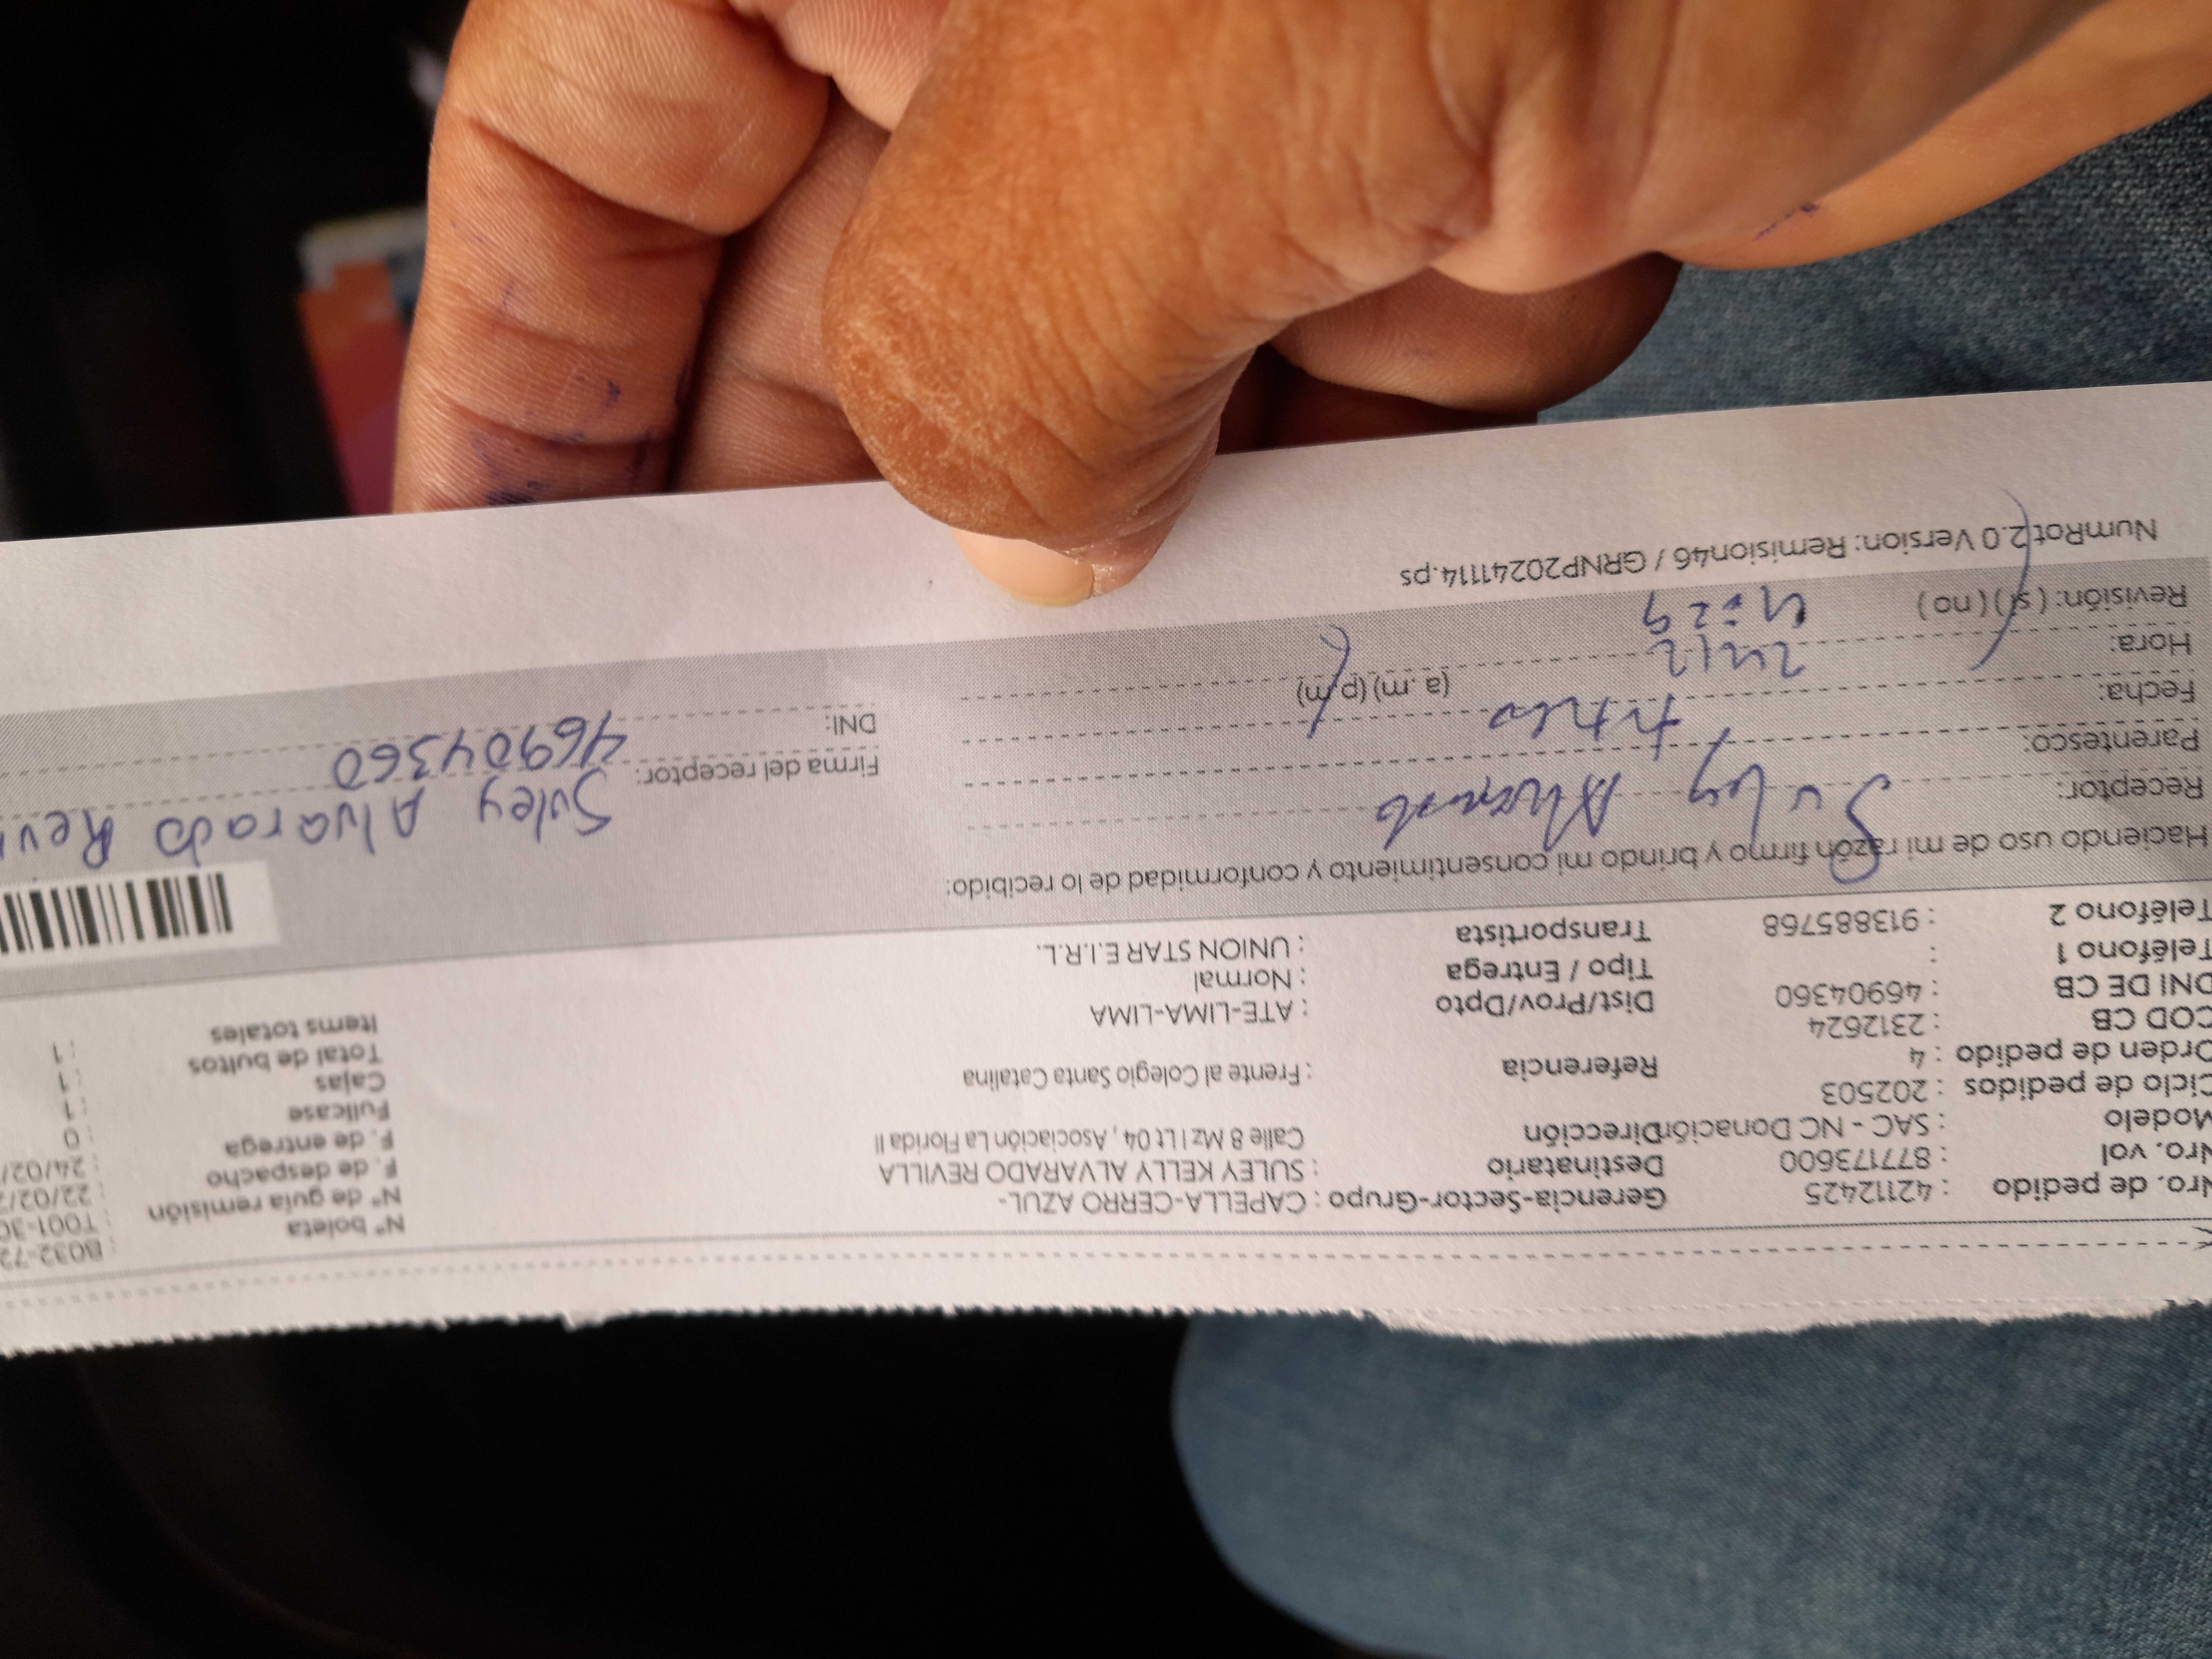 Nro. de pedido : 42112425 Gerencia-Sector-Grupo : CAPELLA-CERRO AZUL- N° boleta : B032-72
Nro. vol : 877173600 Destinatario : SULEY KELLY ALVARADO REVILLA N° de guía remisión : T001-30
Modelo : SAC - NC Donación Dirección Calle 8 Mz I Lt 04 , Asociación La Florida II F. de despacho : 22/02/
Ciclo de pedidos : 202503 F. de entrega : 24/02/
Orden de pedido : 4 Referencia : Frente al Colegio Santa Catalina Fullcase : 0
COD CB : 2312624 Cajas : 1
DNI DE CB : 46904360 Dist/Prov/Dpto : ATE-LIMA-LIMA Total de bultos : 1
Teléfono 1 : Tipo / Entrega : Normal Items totales : 1
Teléfono 2 : 913885768 Transportista : UNION STAR E.I.R.L.
Haciendo uso de mi razón firmo y brindo mi consentimiento y conformidad de lo recibido:
Receptor: Suley Alvarado Firma del receptor: Suley Alvarado Rev
Parentesco: DNI: 46904360
Fecha: 24/2
Hora: 4:29 (a.m) (p.m)
Revisión: ( si ) ( no )
NumRot 2.0 Version: Remision46 / GRNP20241114.ps